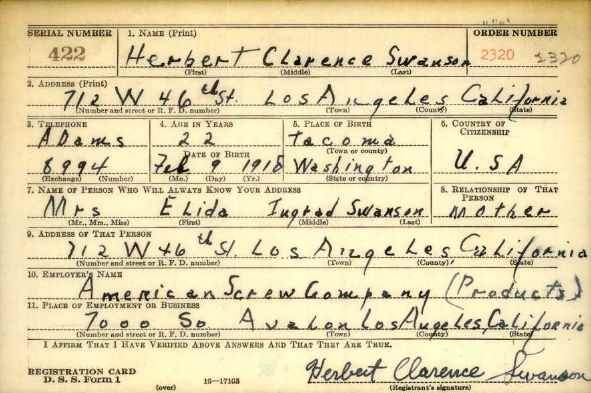 SERIAL NUMBER 1. NAME (Print) ORDER NUMBER
422 Herbert Clarence Swanson 2320 2320
(First) (Middle) (Last)
2. ADDRESS (Print)
712 W 46th St. Los Angeles California
(Number and street or R. F. D. number) (Town) (County) (State)
3. TELEPHONE 4. AGE IN YEARS 5. PLACE OF BIRTH 6. COUNTRY OF CITIZENSHIP
ADams 22 Tacoma
DATE OF BIRTH (Town or county)
8994 Feb 9 1918 Washington U.S.A
(Exchange) (Number) (Mo.) (Day) (Yr.) (State or country)
7. NAME OF PERSON WHO WILL ALWAYS KNOW YOUR ADDRESS 8. RELATIONSHIP OF THAT PERSON
Mrs Elida Ingrad Swanson Mother
(Mr., Mrs., Miss) (First) (Middle) (Last)
9. ADDRESS OF THAT PERSON
712 W 46th St. Los Angeles California
(Number and street or R. F. D. number) (Town) (County) (State)
10. EMPLOYER'S NAME
American Screw Company (Products)
11. PLACE OF EMPLOYMENT OR BUSINESS
7000 So Avalon Los Angeles, California
(Number and street or R. F. D. number) (Town) (County) (State)
I AFFIRM THAT I HAVE VERIFIED ABOVE ANSWERS AND THAT THEY ARE TRUE.
Herbert Clarence Swanson
REGISTRATION CARD
D. S. S. Form 1 (over) 16—17105 (Registrant's signature)